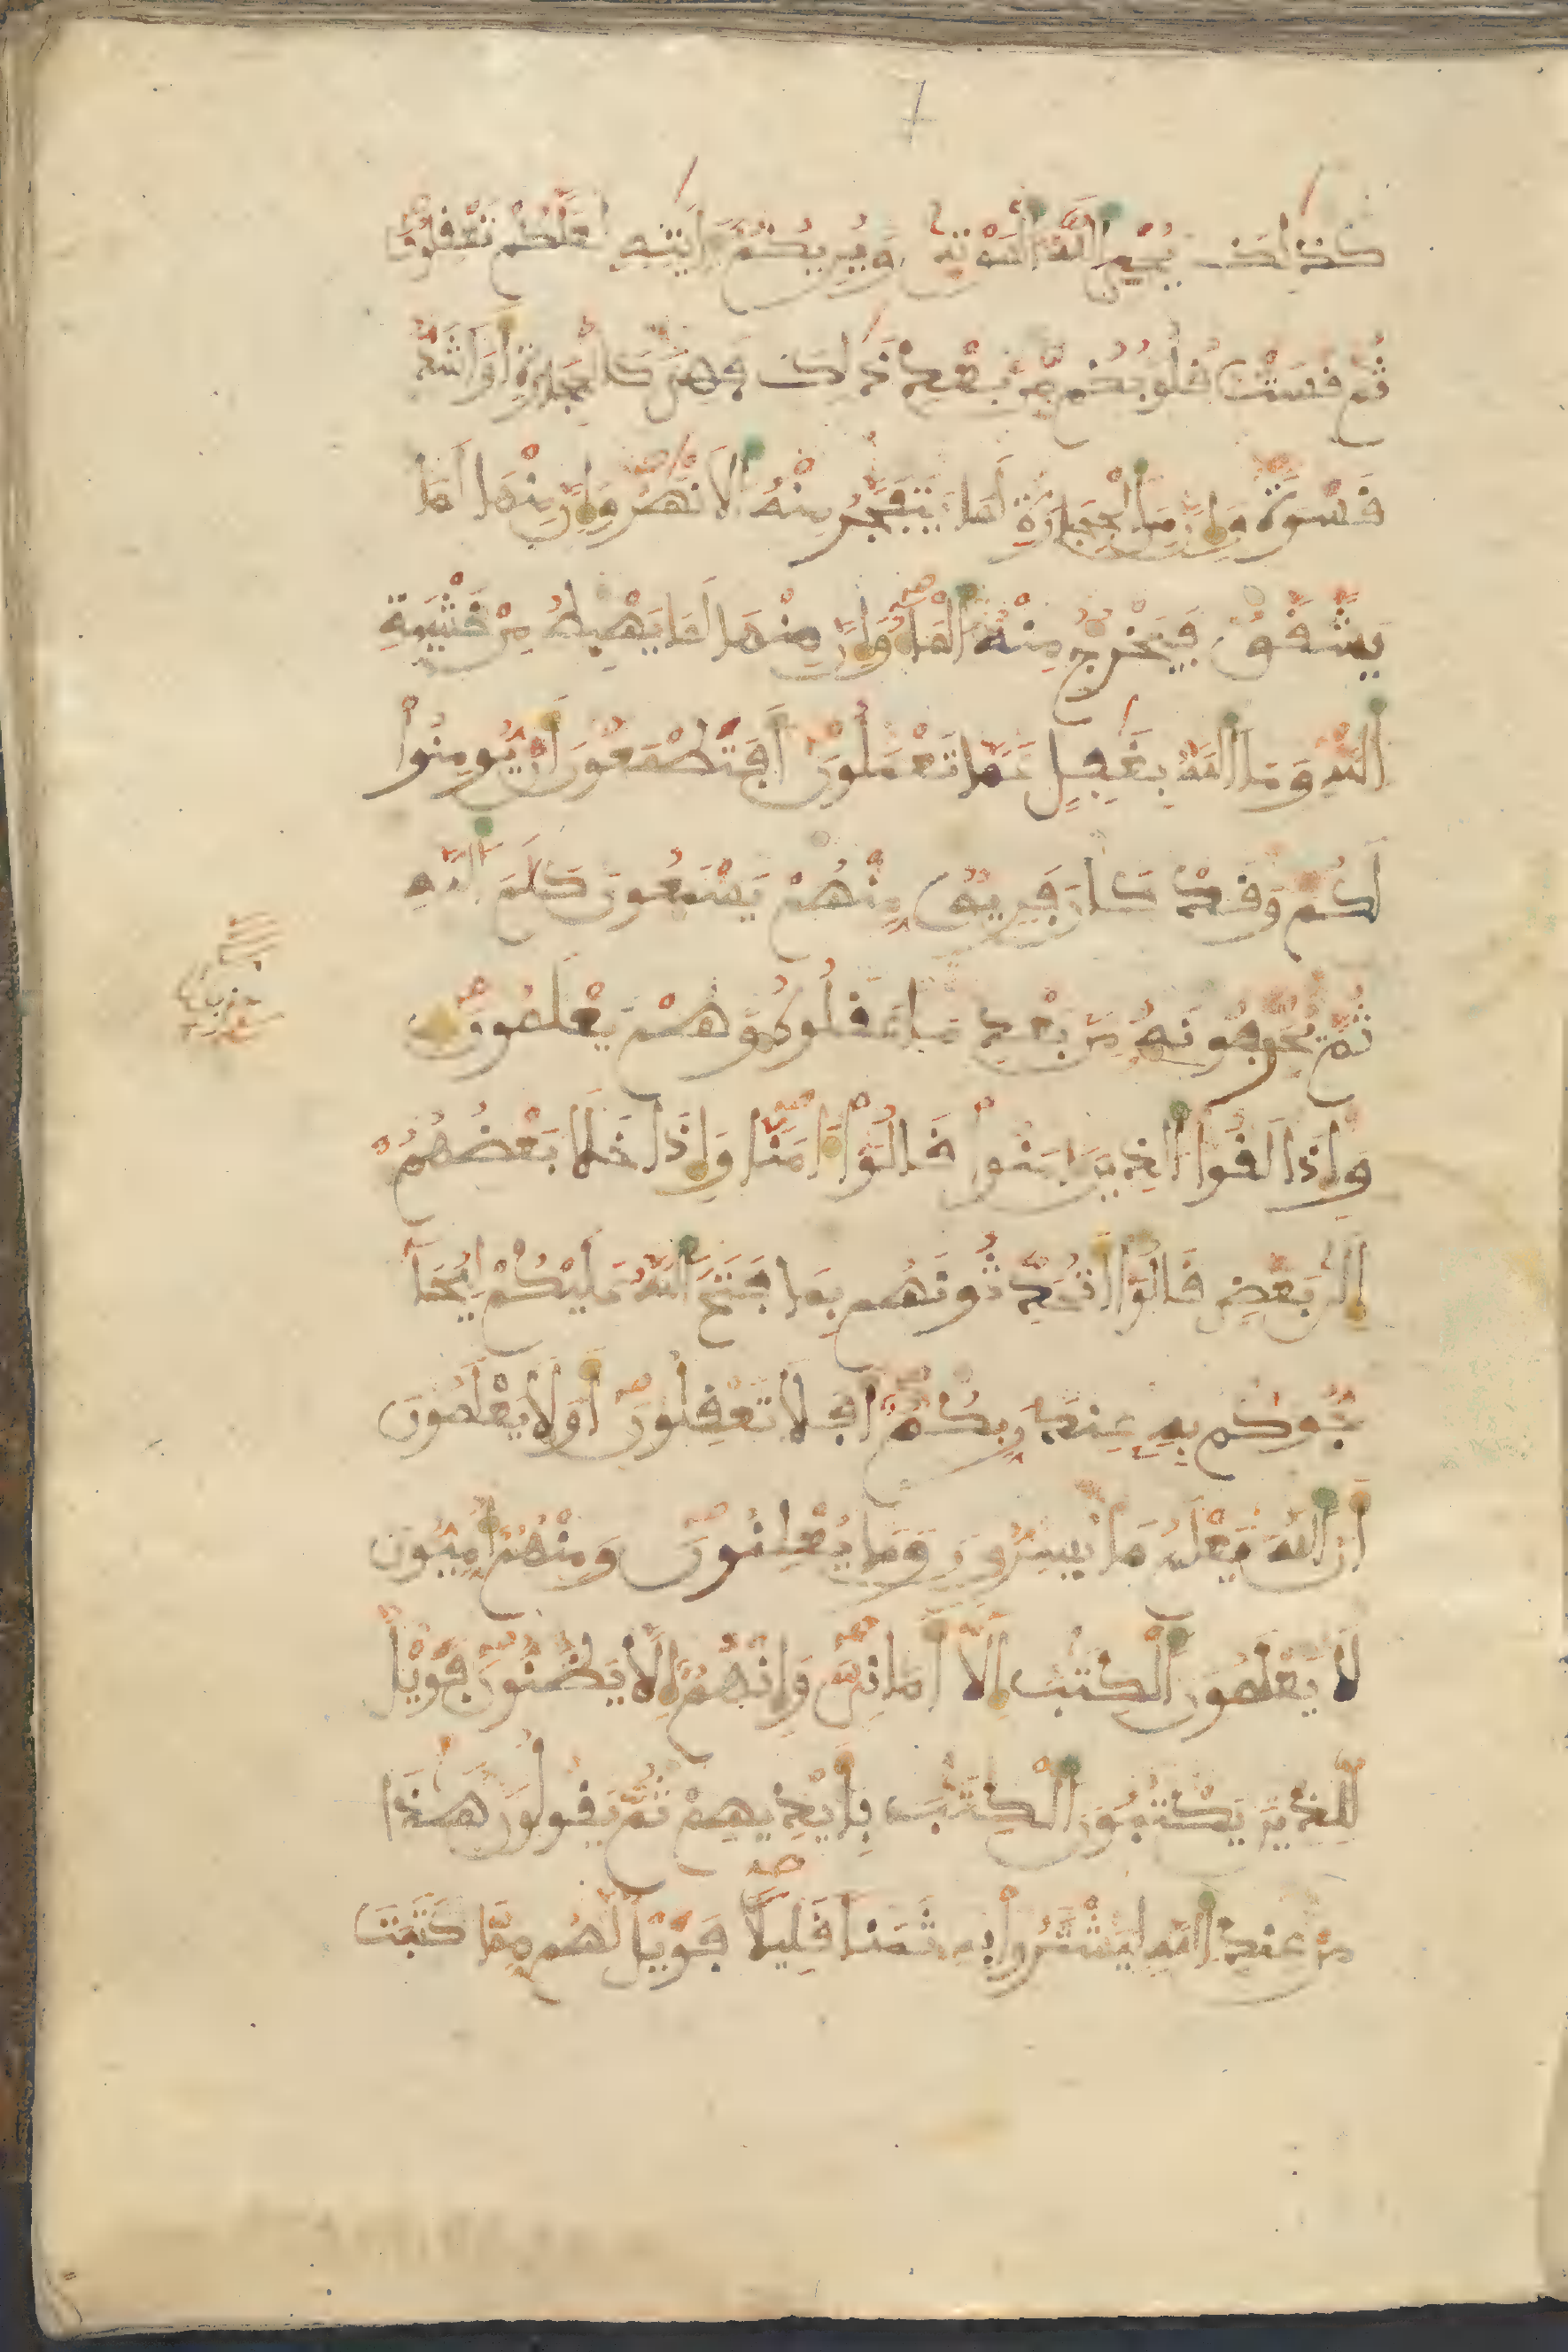 كَذَٰلِكَ يُحْيِ اِ۬للَّهُ اُ۬لْمَوْتۭىٰ وَيُرِيكُمُۥٓ ءَايَٰتِهِۦ لَعَلَّكُمْ تَعْفِلُونَ
ثُمَّ فَسَتْ فُلُوبُكُم مِّنۢ بَعْدِ ذَٰلِكَ فَهِىَ كَالْحِجَارَةِ أَوَ اَشَدُّ
فَسْوَةً وَإِنَّ مِنَ اَ۬لْحِجَارَةِ لَمَا يَتَفَجَّرُ مِنْهُ اُ۬لَانْهَٰرُ وَإِنَّ مِنْهَا لَمَا
يَشَّفَّقُ فَيَخْرُجُ مِنْهُ اُ۬لْمَآءُ وَإِنَّ مِنْهَا لَمَا يَهْبِطُ مِنْ خَشْيَةِ
اِ۬للَّهِ وَمَا اَ۬للَّهُ بِغَٰفِلٍ عَمَّا تَعْمَلُونَ أَفَتَطْمَعُونَ أَنْ يُّومِنُوا۟
لَكُمْ وَفَدْ كَانَ فَرِيقٌ مِّنْهُمْ يَسْمَعُونَ كَلَٰمَ اَ۬للَّهِ
ثُمَّ يُحَرِّفُونَهُۥ مِنۢ بَعْدِ مَا عَفَلُوهُ وَهُمْ يَعْلَمُونَ
حزب
وَإِذَا لَفُوا۟ اُ۬لذِينَ ءَامَنُوا۟ فَالُوٓا۟ ءَامَنَّا وَإِذَا خَلَا بَعْضُهُمُۥٓ
إِلَىٰ بَعْضٍ فَالُوٓا۟ أَتُحَدِّثُونَهُم بِمَا فَتَحَ اَ۬للَّهُ عَلَيْكُمْ لِيُحَآ
جُّوكُم بِهِۦ عِندَ رَبِّكُمُۥٓ أَفَلَا تَعْفِلُونَ أَوَلَا يَعْلَمُونَ
أَنَّ اَ۬للَّهَ يَعْلَمُ مَا يُسِرُّونَ وَمَا يُعْلِنُونَ وَمِنْهُمُۥٓ أُمِّيُّونَ
لَا يَعْلَمُونَ اَ۬لْكِتَٰبَ إِلَّآ أَمَانِىَّ وَإِنْ هُمُۥٓ إِلَّا يَظُنُّونَ فَوَيْلٌ
لِّلذِينَ يَكْتُبُونَ اَ۬لْكِتَٰبَ بِأَيْدِيهِمْ ثُمَّ يَفُولُونَ هَٰذَا
مِنْ عِندِ اِ۬للَّهِ لِيَشْتَرُوا۟ بِهِۦ ثَمَناً فَلِيلاً فَوَيْلٌ لَّهُم مِّمَّا كَتَبَتَ